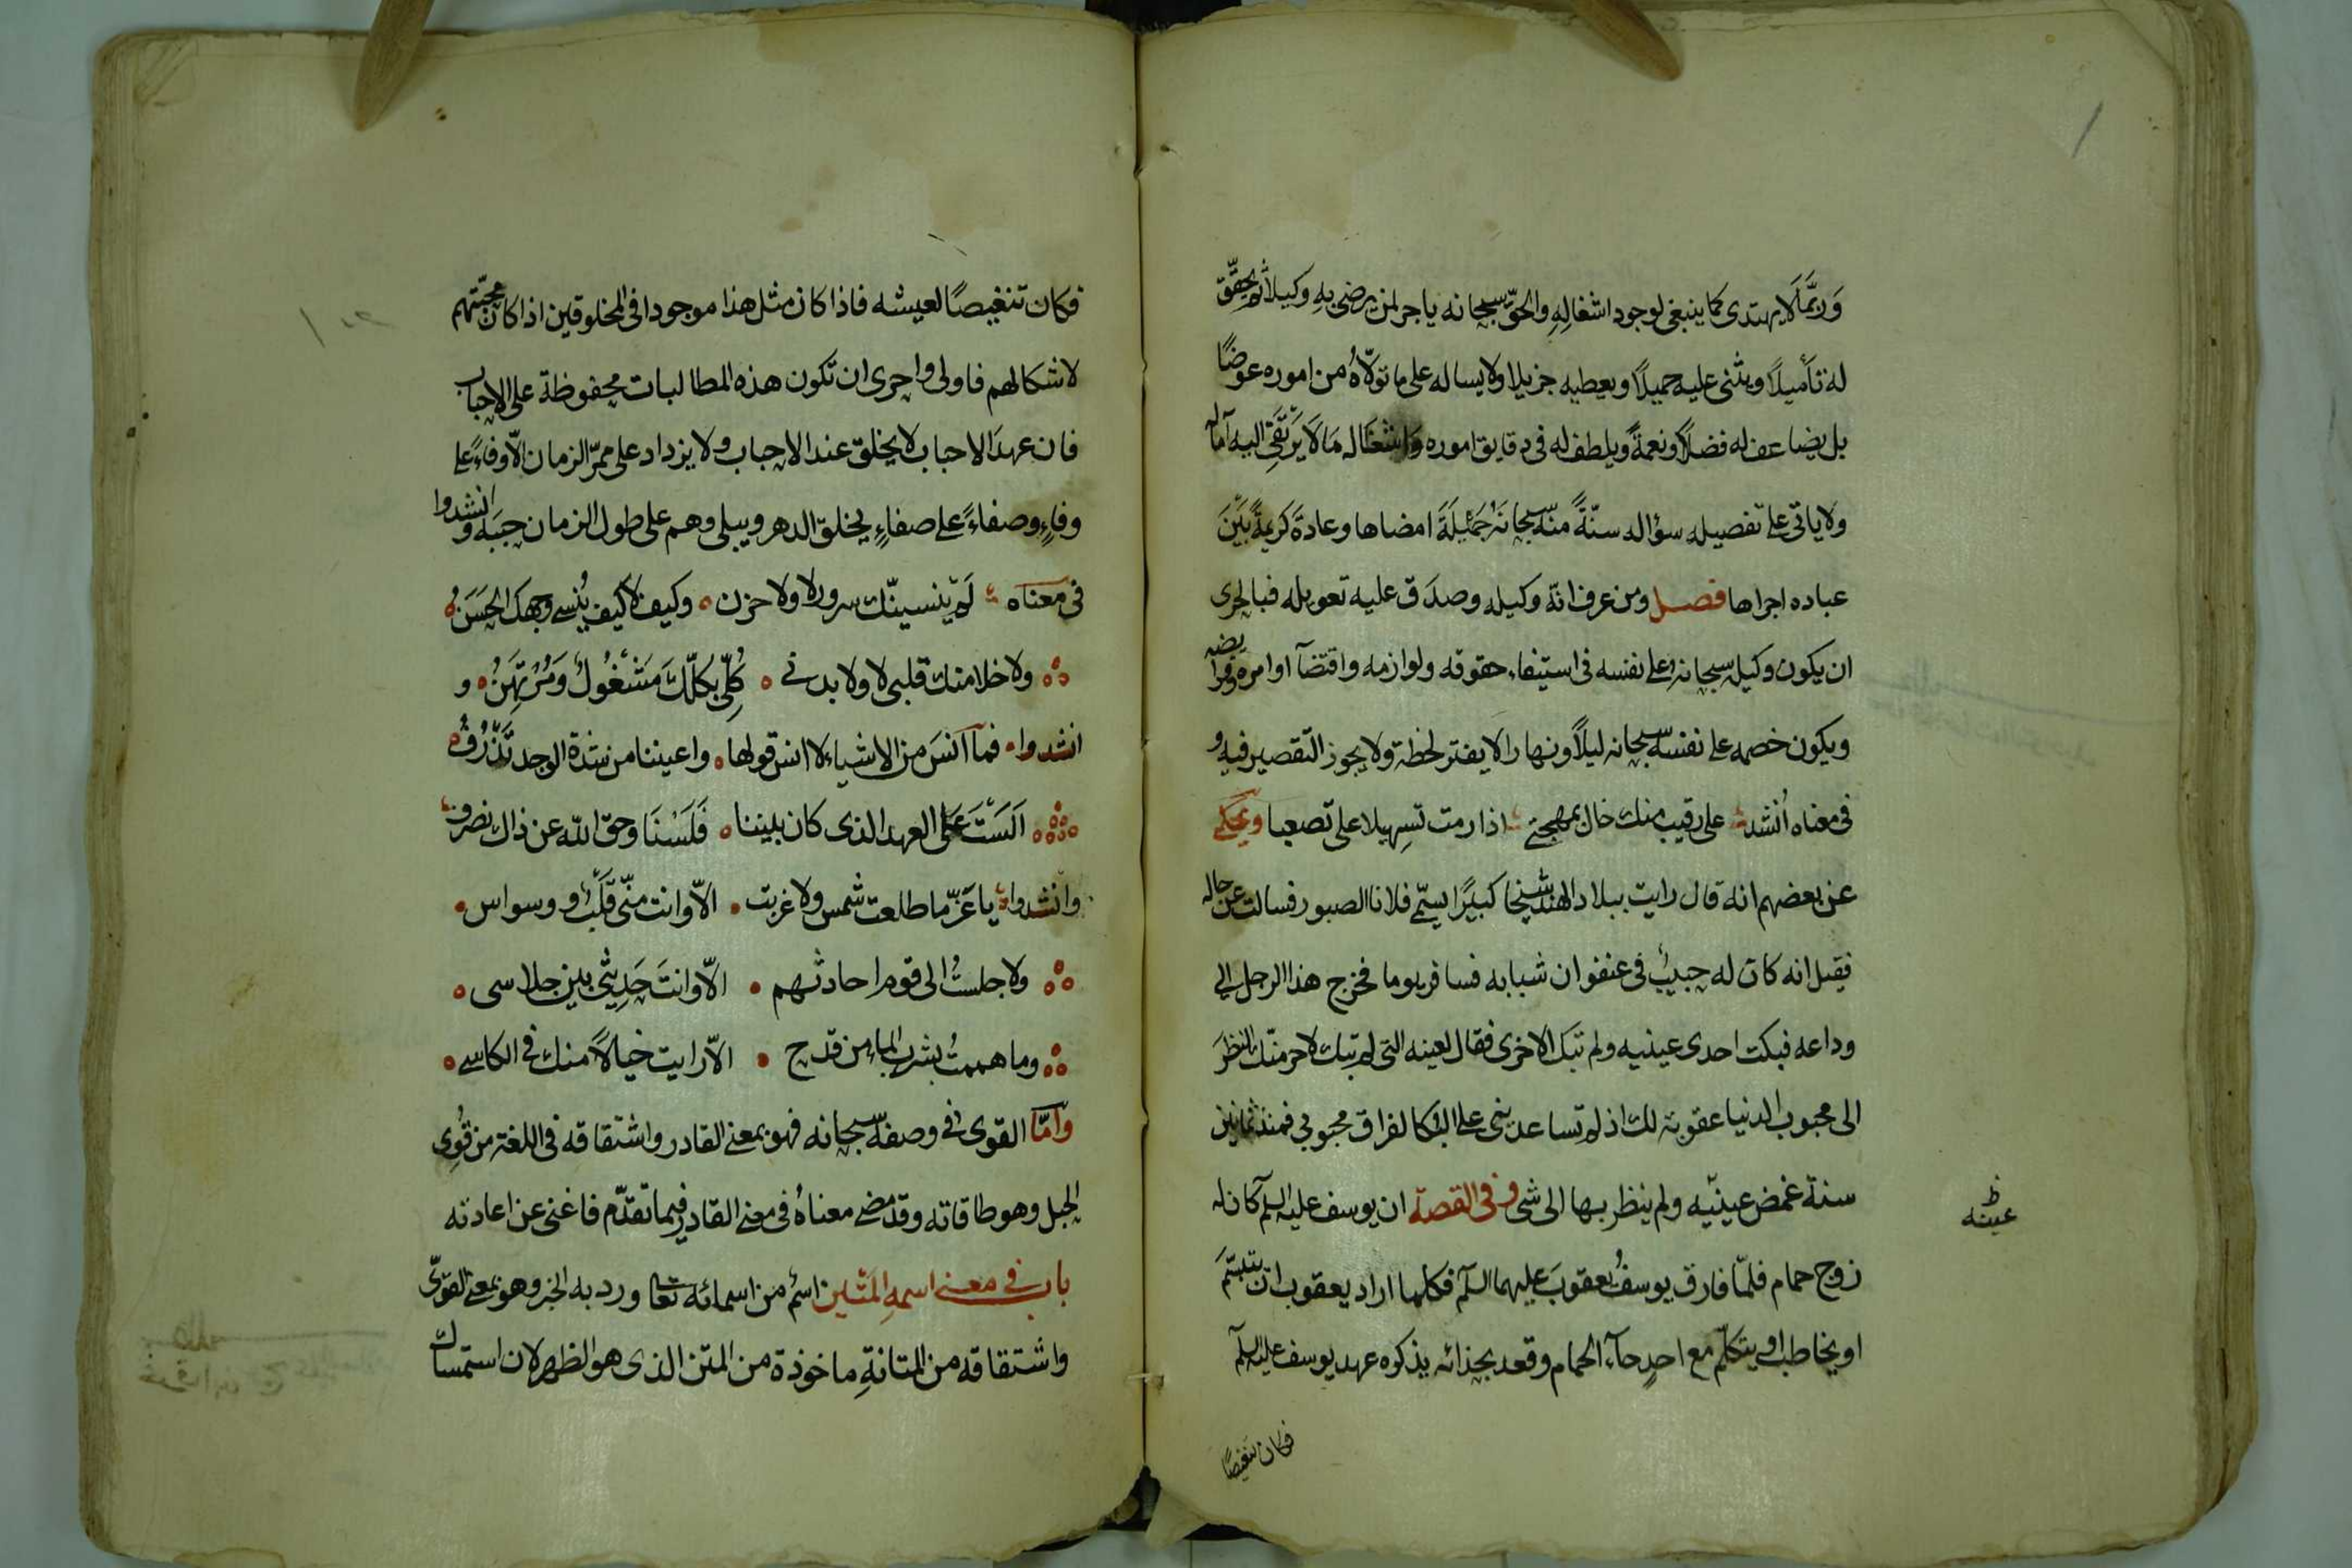 وَرُبَّمَا لَا يهتدى كما ينبغى لوجود اشغالِهِ والحقّ سبحانه ياجر لمن يرضى بهِ وكيلاً ثم يحقّق
له تأميلاً ويثنى عليه جميلاً ويعطيه جزيلا ولا يساله على ما تولّاهُ من اموره عوضًا
بل يضاعف له فضلاً ونعمةً ويلطف له فى دقايق اموره واشغاله مَا لَا يَرْتَقِى اليه آماله
ولا ياتى على تفصيله سؤاله سنّةً منه سبحانَهُ جَمِيْلَةً امضاها وعادةً كريمةً بَيْنَ
عباده اجراها فصل ومن عرف انّه وكيله وصدَق عليه تعويله فبالحرى
ان يكون وكيله سبحانه على نفسه فى استيفاء حقوقه ولوازمه واقتضآ اوامره وفرايضه
ويكون خصمه على نفسه سبحانه ليلاً ونهارا لا يفتر لحظة ولا يجوز التقصير فيه و
فى معناه أنشد على رقيب منك خال بمهجتى اذا رمت تسهيلا على تصعبا ويحكى
عن بعضهم انه قال رايت ببلاد الهند شيخا كبيرًا يسمّى فلانا الصبور فسالت عن حاله
فقيل انه كان له حبيبٌ فى عنفوان شبابه فسافر يوما فخرج هذا الرجل الى
وداعه فبكت احدى عينيه ولم تبك الاخرى فقال لعينه التى لم تبك لاحرمنّك النظر
الى محبوب الدنيا عقوبة لك اذ لم تساعدينى على البكا لفراق محبوبى فمنذ ثمانين
سنة غمض عينيّه ولم ينظر بها الى شى وفى القصة ان يوسف عليه السلم كان له
زوج حمام فلمّا فارق يوسفُ يعقوبَ عليهما السلم فكلما اراد يعقوب ان يتبسّم
او يخاطب او يتكلّم مع احدٍ جآء الحمام وقعد بحذائه يذكره عهد يوسف عليه السلم
فكان تنغيصًا
ظ
عينه
فكان تنغيصًا لعيشه فاذا كان مثل هذا موجودا فى المخلوقين اذا كان محبّتهم
لاشكالهم فاولى واحرى ان تكون هذه المطالبات محفوظة على الاحباب
فان عهدَ الاحباب لا يخلق عند الاحباب ولا يزداد على ممرّ الزمان الّا وفاءً على
وفاءٍ وصفاءً على صفاءٍ يخلق الدهر ويبلى وهم على طول الزمان جبَه وانشدوا
فى معناه لم يُنسينّك سرور لا ولا حزن وكيف لا كيف يُنسى وجهك الحَسَنُ
ولا خلا منك قلبى لا ولا بدنى كُلِّى بكُلّكَ مَشْغُولٌ وَمُرْتَهِنُ و
انشدوا فمآ آنسَ من الاشياء لا انس قولها واعيننا من شدة الوجد تَذْرُفُ
اَلَسْتَ عَلَى العهد الذى كان بيننا فَلَسْنَا وحق الله عن ذاك نصرف
وانشدوا يا عَزّ ما طلعت شمس ولا غربت الّا وانت منّى قَلْبٌ و وسواس
ولا جلستُ الى قوم احادثهم الّا وانتَ حَدِيْثى بين جلاسى
وما هممتُ بشرب الماء من قدح الّا رايت خيالاً منك فى الكاسى
وامّا القوى فى وصفه سبحانه فهو بمعنى القادر واشتقاقه فى اللغة من قُوِى
الحبل وهو طاقاته وقد مضى معناهُ فى معنى القادر فيما تقدّم فاغنى عن اعادته
باب فى معنى اسمهِ المَتين اسمٌ من اسمائه تعا ورد به الخبر وهو بمعنى القوىّ
واشتقاقه من المتانةِ ماخوذة من المتن الذى هو الظهر لان استمساك